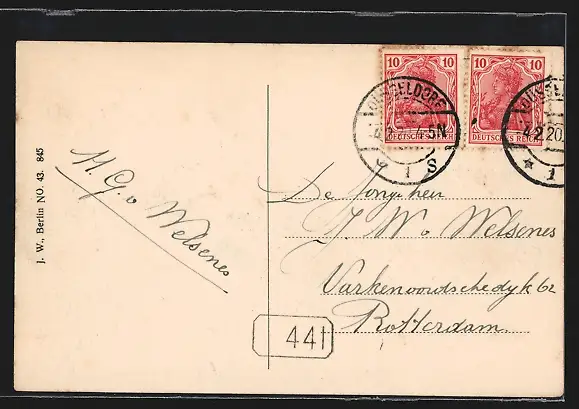 10 10 10 10
DÜSSELDORF DÜSSEL
4-5N 4.2.20.
DEUTSCHES REICH DEUTSCHES REICH
1 S * 1
J. W., Berlin NO. 43. 845
H. G. v Welsenes
De Jongeheer
J. W v Welsenes
Varkenoordschedyk 62
Rotterdam.
441